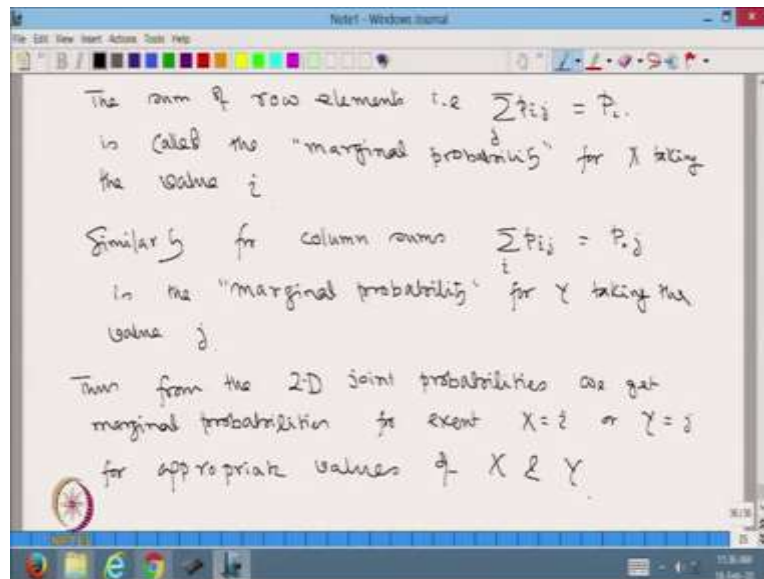 Note1 - Windows Journal
File Edit View Insert Actions Tools Help
The sum of row elements i.e ∑_j p_ij = P_i.
is called the "marginal probability" for X taking
the value i
Similarly for column sums ∑_i p_ij = P.j
is the "marginal probability" for Y taking the
value j
Thus from the 2-D joint probabilities we get
marginal probabilities for event X = i or Y = j
for appropriate values of X & Y.
NPTEL